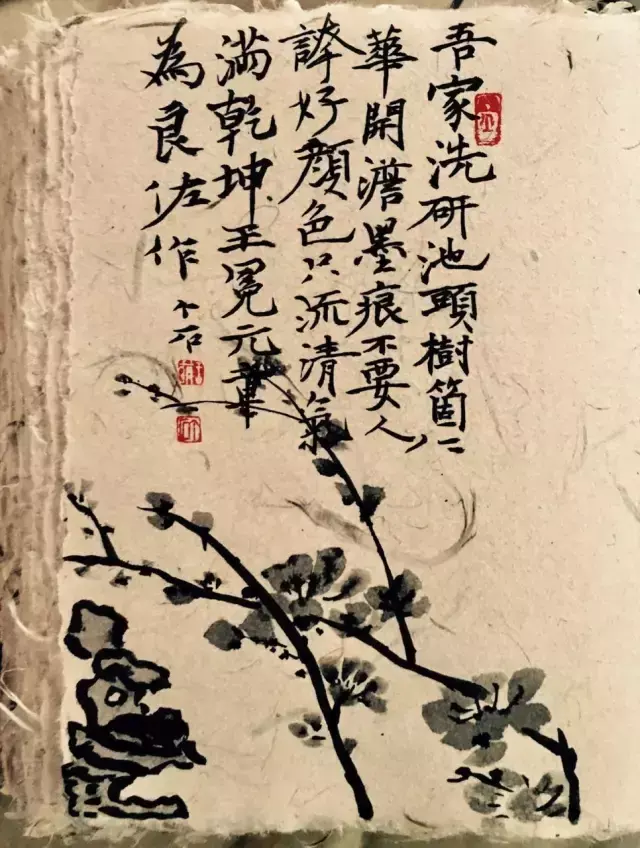 吾家洗研池頭樹箇二
華開澹墨痕不要人
誇好顏色只流清氣
滿乾坤王冕元章
為良佐作
个石